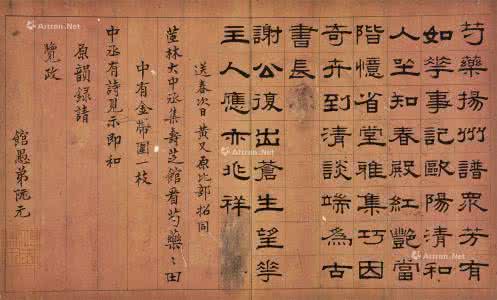 芍藥揚州譜衆芳有
如華事記歐陽清和
人坐知春殿紅艷當
階憶省堂雅集巧因
奇卉到清談端為古
書長
謝公復出蒼生望華
主人應亦兆祥
送春次日黃又原比部招同
茝林大中丞集壽芝館看芍藥〻田
中有金帶圍一枝
中丞有詩見示即和
原韻錄請
覽政
館愚弟阮元
AntPhoto.Net
AntPhoto.Net
AntPhoto.Net
AntPhoto.Net